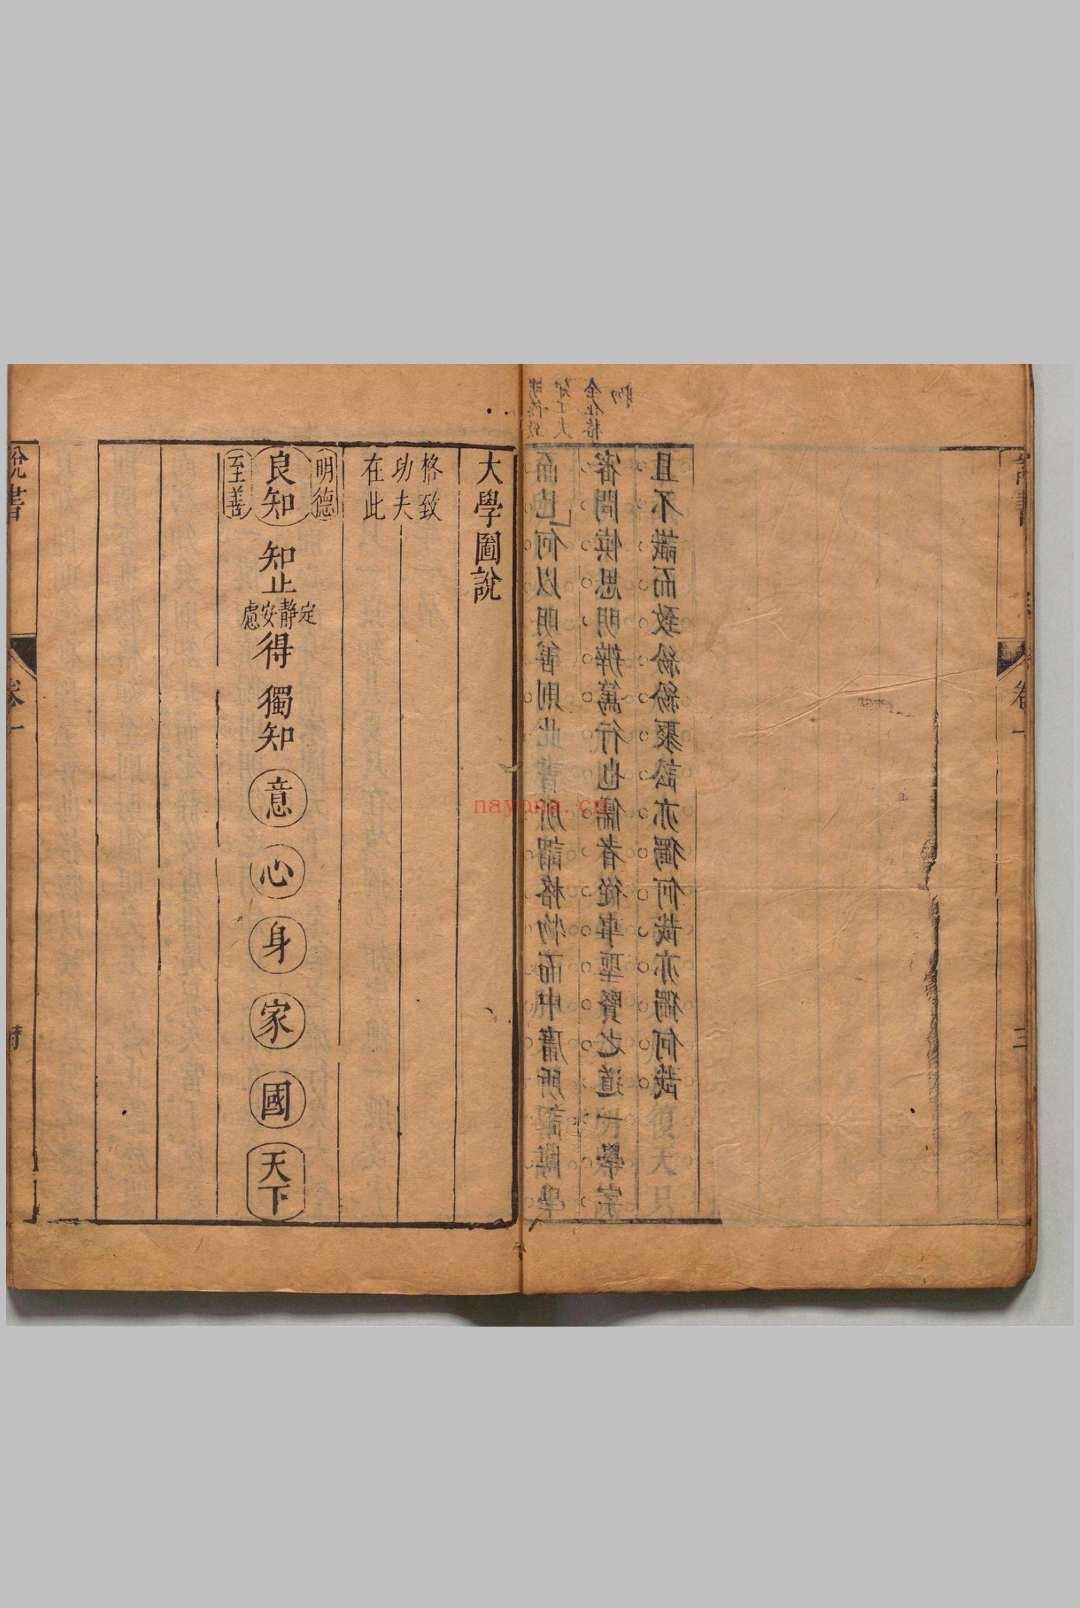 三
而也何以明善則此書所謂格物而中庸所謂博學
審問慎思明辨篤行也儒者從事聖賢之道一學字
且不識而致紛紛聚訟亦獨何哉亦獨何哉
大學圖說
格致
功夫
在此
明德
良知
至善
知止
定靜安慮
得
獨知
意
心
身
家
國
天下
說書
卷一
nayona.cn